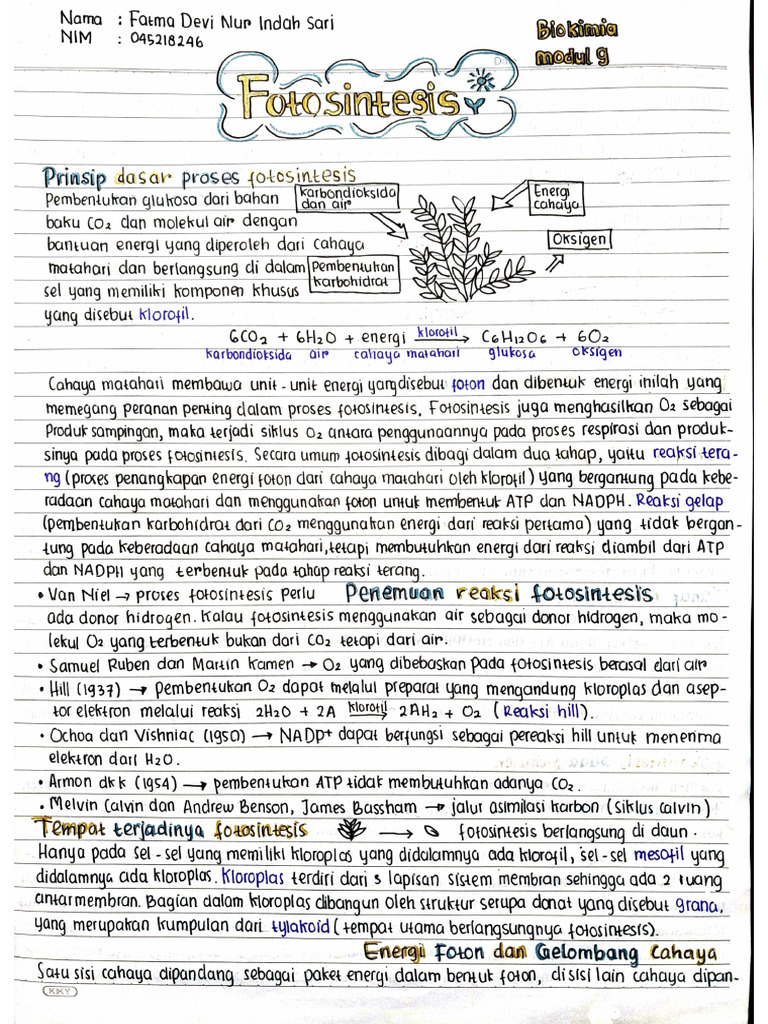 Nama : Fatma Devi Nur Indah Sari
NIM : 045218246
Biokimia
modul 9
Fotosintesis
Prinsip dasar proses fotosintesis
Pembentukan glukosa dari bahan
baku CO2 dan molekul air dengan
bantuan energi yang diperoleh dari cahaya
matahari dan berlangsung di dalam
sel yang memiliki komponen khusus
yang disebut klorofil.
karbondioksida
dan air
Energi
cahaya
Oksigen
Pembentukan
karbohidrat
6CO2 + 6H2O + energi klorofil → C6H12O6 + 6O2
karbondioksida air cahaya matahari glukosa oksigen
Cahaya matahari membawa unit-unit energi yang disebut foton dan dibentuk energi inilah yang
memegang peranan penting dalam proses fotosintesis. Fotosintesis juga menghasilkan O2 sebagai
Produk sampingan, maka terjadi siklus O2 antara penggunaannya pada proses respirasi dan produk-
sinya pada proses fotosintesis. Secara umum fotosintesis dibagi dalam dua tahap, yaitu reaksi tera-
ng (proses penangkapan energi foton dari cahaya matahari oleh klorofil) yang bergantung pada kebe-
radaan cahaya matahari dan menggunakan foton untuk membentuk ATP dan NADPH. Reaksi gelap
(pembentukan karbohidrat dari CO2 menggunakan energi dari reaksi pertama) yang tidak bergan-
tung pada keberadaan cahaya matahari, tetapi membutuhkan energi dari reaksi diambil dari ATP
dan NADPH yang terbentuk pada tahap reaksi terang.
Penemuan reaksi fotosintesis
• Van Niel → proses fotosintesis perlu
ada donor hidrogen. Kalau fotosintesis menggunakan air sebagai donor hidrogen, maka mo-
lekul O2 yang terbentuk bukan dari CO2 tetapi dari air.
• Samuel Ruben dan Martin Kamen → O2 yang dibebaskan pada fotosintesis berasal dari air
• Hill (1937) → pembentukan O2 dapat melalui preparat yang mengandung kloroplas dan asep-
tor elektron melalui reaksi 2H2O + 2A klorofil → 2AH2 + O2 (Reaksi hill).
• Ochoa dan Vishniac (1950) → NADP+ dapat berfungsi sebagai pereaksi hill untuk menerima
elektron dari H2O.
• Armon dkk (1954) → pembentukan ATP tidak membutuhkan adanya CO2.
• Melvin Calvin dan Andrew Benson, James Bassham → jalur asimilasi karbon (siklus calvin)
Tempat terjadinya fotosintesis → fotosintesis berlangsung di daun.
Hanya pada sel-sel yang memiliki kloroplas yang didalamnya ada klorofil, sel-sel mesofil yang
didalamnya ada kloroplas. Kloroplas terdiri dari 3 lapisan sistem membran sehingga ada 2 ruang
antarmembran. Bagian dalam kloroplas dibangun oleh struktur serupa donat yang disebut grana,
yang merupakan kumpulan dari tylakoid (tempat utama berlangsungnya fotosintesis).
Energi Foton dan Gelombang Cahaya
Satu sisi cahaya dipandang sebagai paket energi dalam bentuk foton, disisi lain cahaya dipan-
KIKY